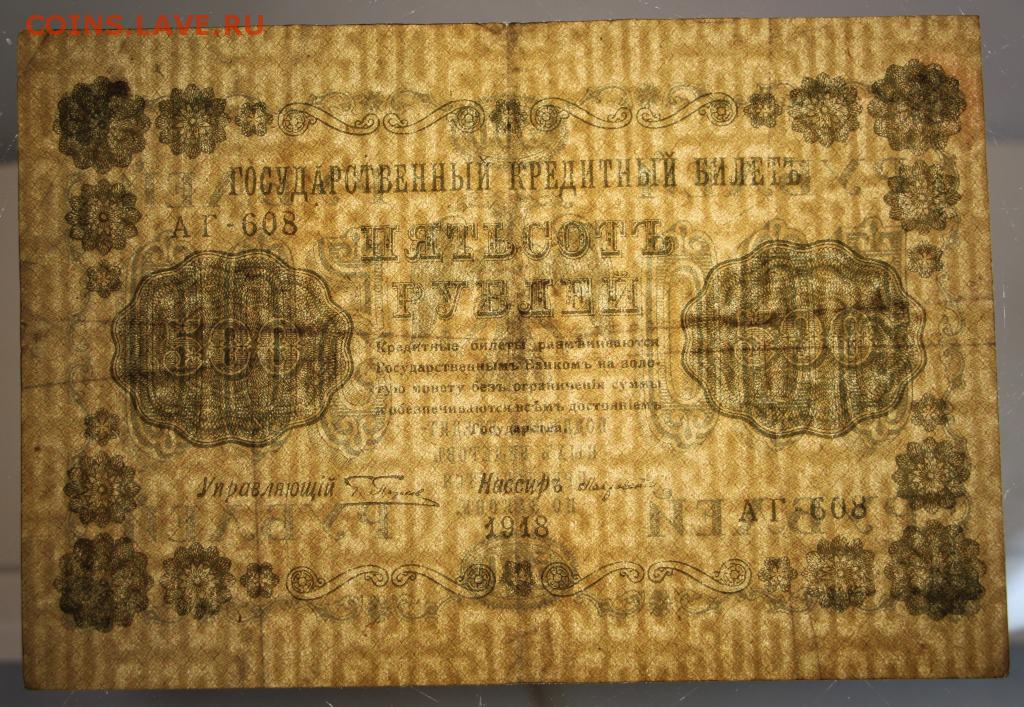 COINS.LAVE.RU
ГОСУДАРСТВЕННЫЙ КРЕДИТНЫЙ БИЛЕТЪ
АГ-608
ПЯТЬСОТЪ
РУБЛЕЙ
500
500
Кредитные билеты размѣниваются
Государственнымъ Банкомъ на золо-
тую монету безъ ограниченія суммы
и обезпечиваются всѣмъ достояніемъ
Государства.
Управляющій
Кассиръ
АГ-608
1918